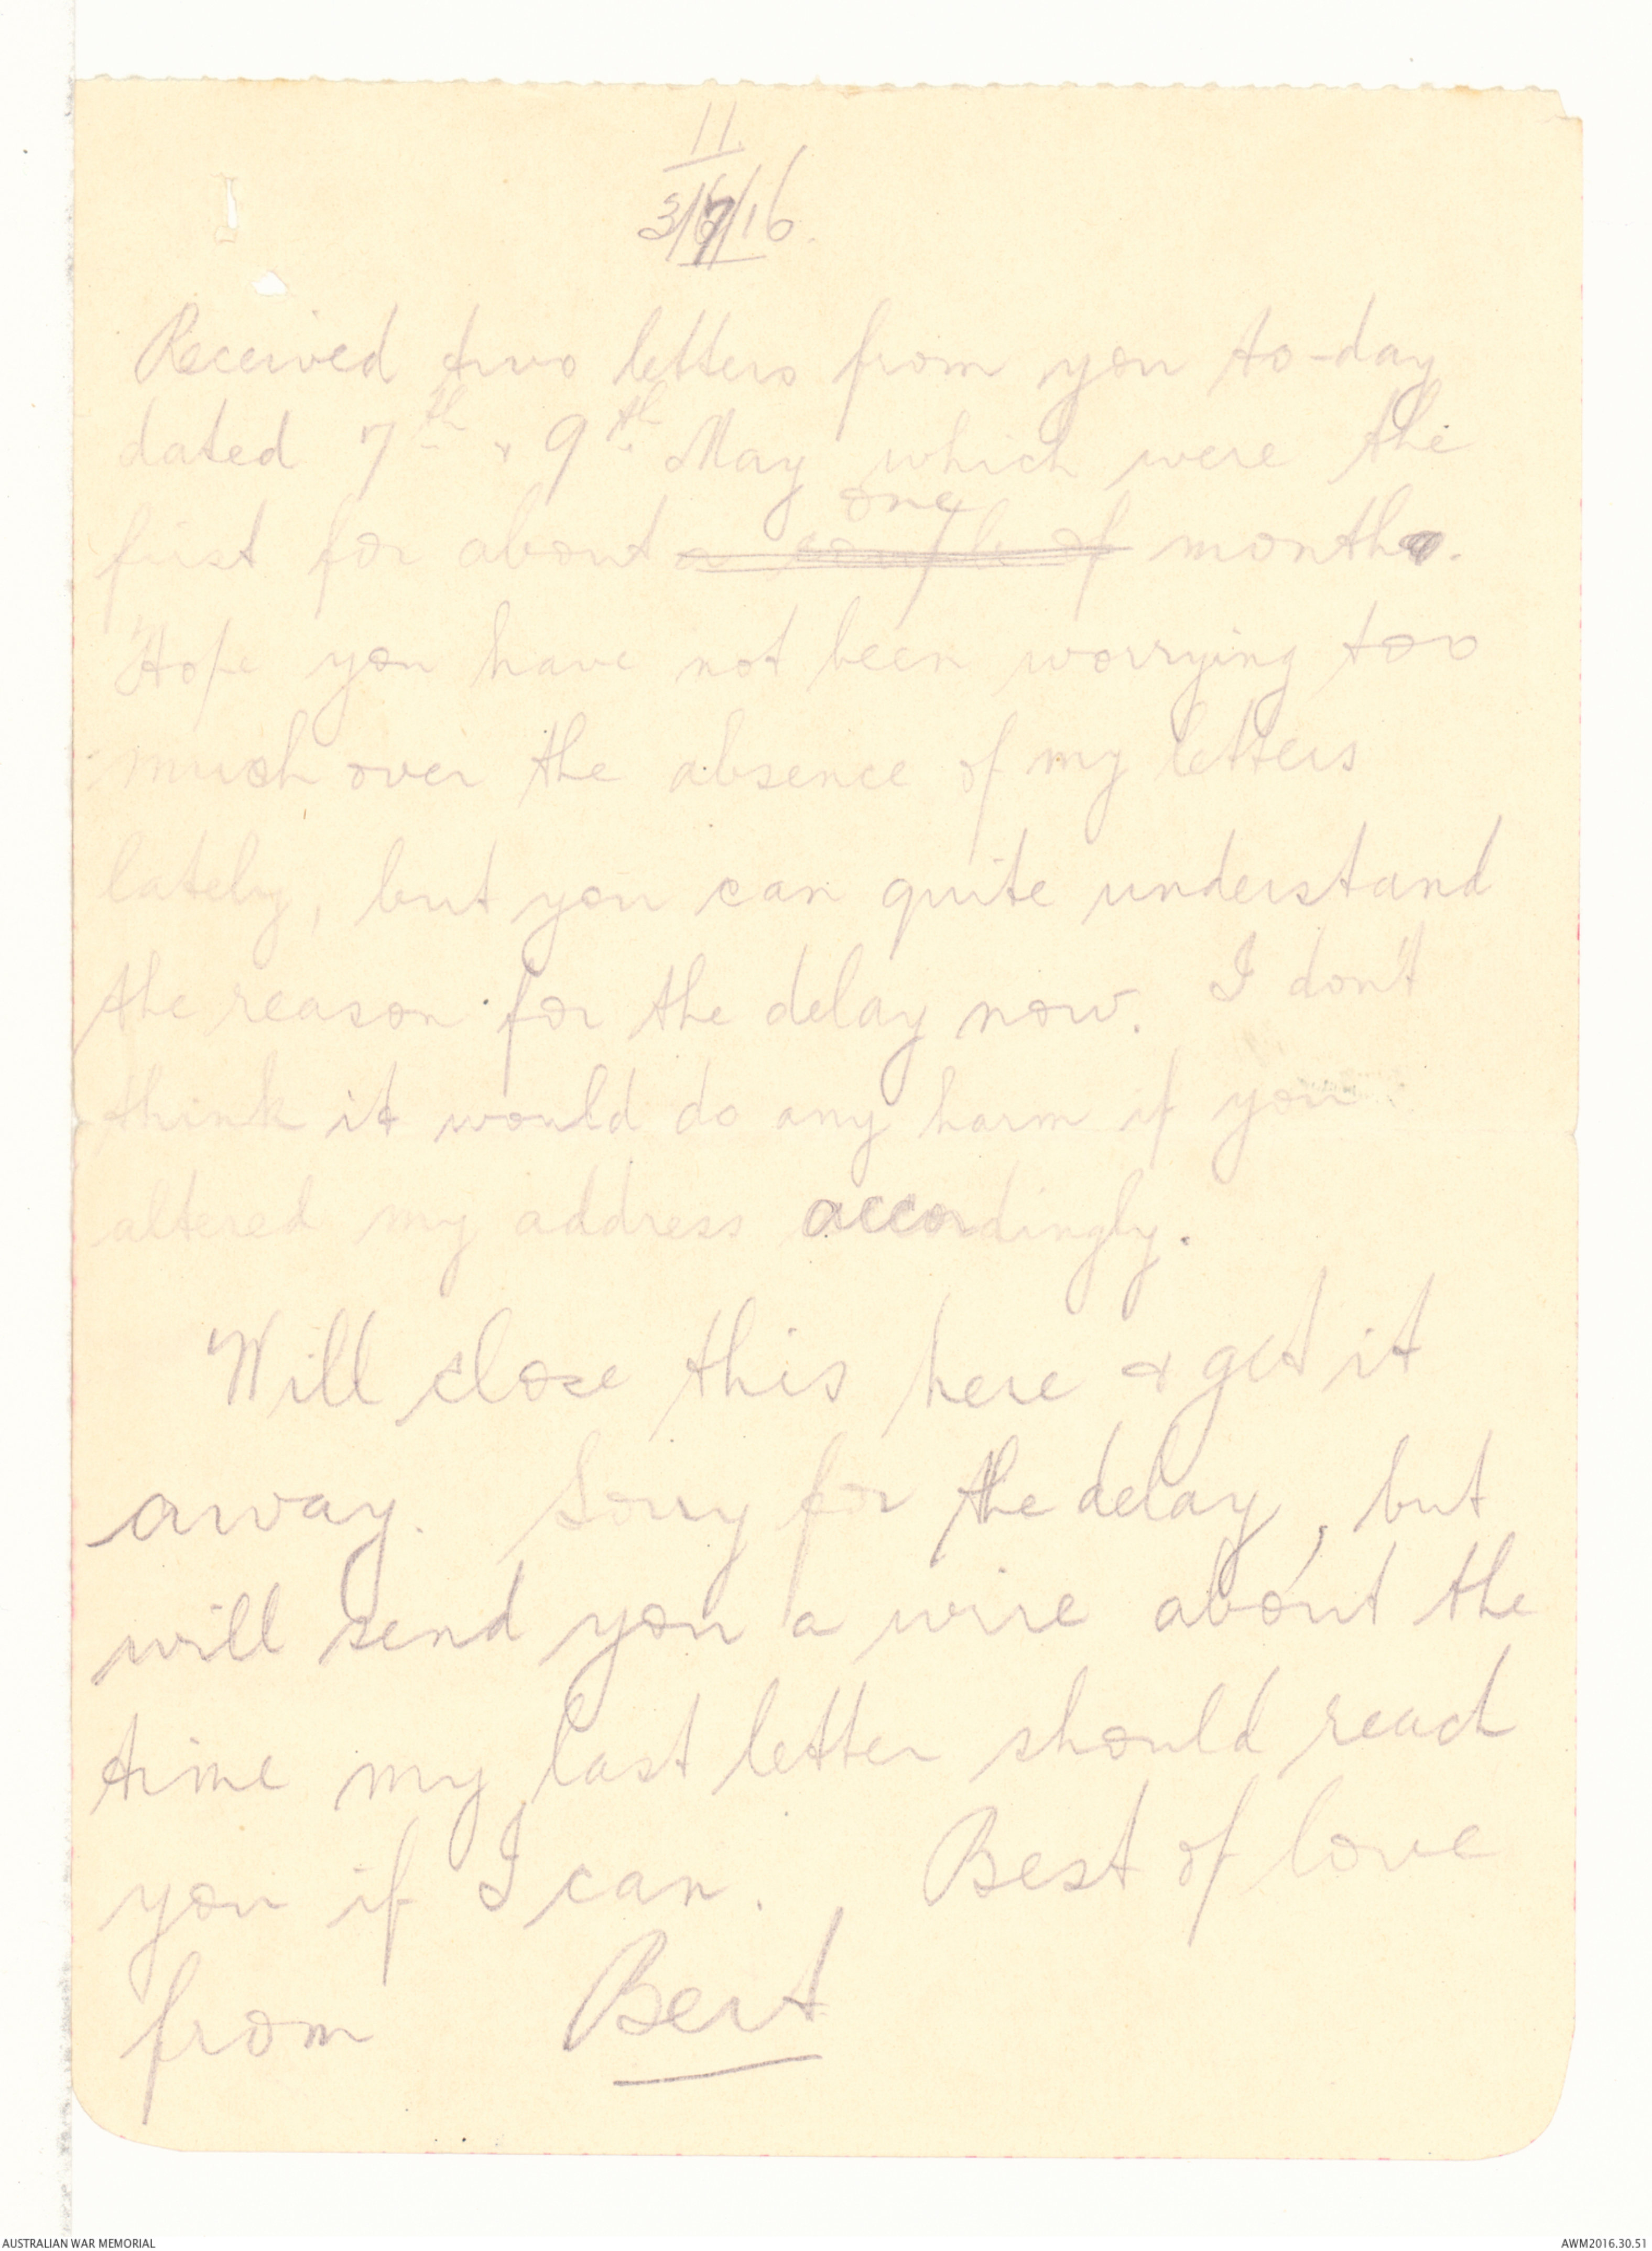 11.
3/7/16.
Received two letters from you to-day
dated 7th & 9th May which were the
one
first for about a couple of month.
Hope you have not been worrying too
much over the absence of my letters
lately, but you can quite understand
the reason for the delay now. I don't
think it would do any harm if you
altered my address accordingly.
Will close this here & get it
away. Sorry for the delay, but
will send you a wire about the
time my last letter should reach
you if I can. Best of love
from Bert
AUSTRALIAN WAR MEMORIAL
AWM2016.30.51